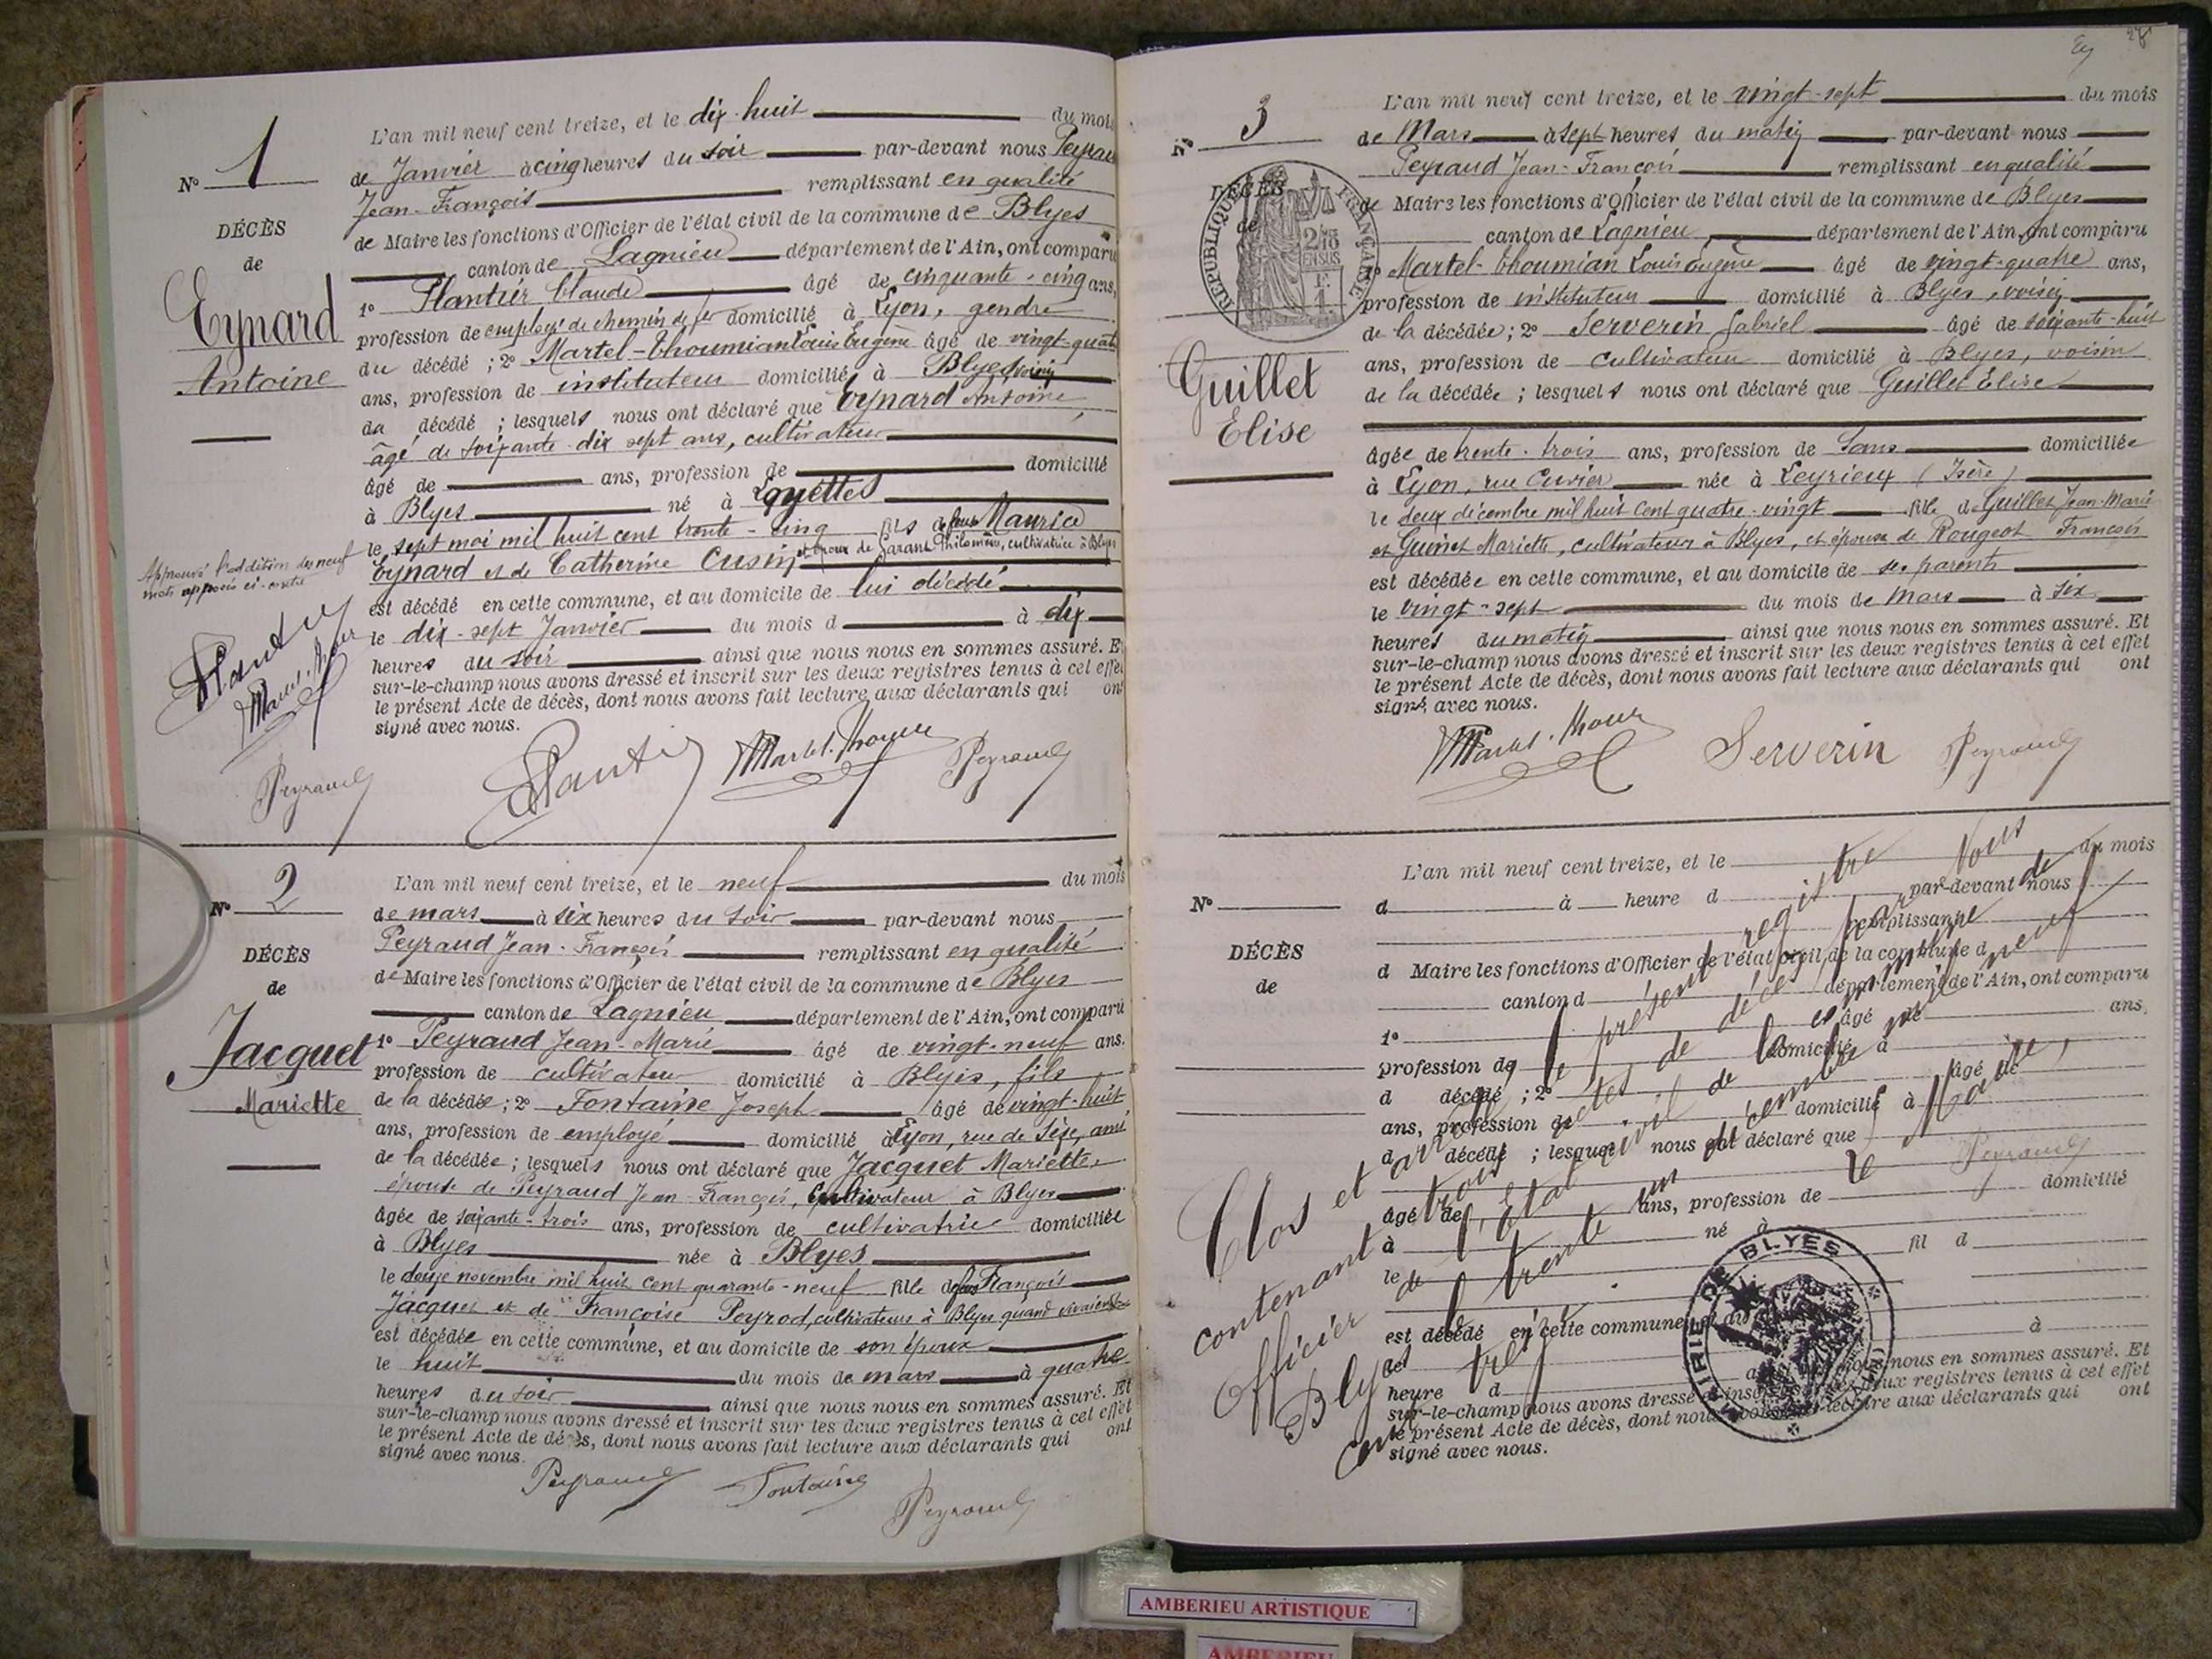 N° 1
DÉCÈS
de
Eynard
Antoine
L'an mil neuf cent treize, et le dix-huit du mois
de Janvier à cinq heures du soir par-devant nous Peyraud
Jean-François remplissant en qualité
de Maire les fonctions d'Officier de l'état civil de la commune de Blyes
canton de Lagnieu département de l'Ain, ont comparu
1° Plantier Claude âgé de cinquante-cinq ans,
profession de employé de chemin de fer domicilié à Lyon, gendre
du décédé ; 2° Martel-Thoumian Louis Eugène âgé de vingt-quatre
ans, profession de instituteur domicilié à Blyes, voisin
du décédé ; lesquels nous ont déclaré que Eynard Antoine,
âgé de soixante-dix sept ans, cultivateur
âgé de ans, profession de domicilié
à Blyes né à Loyettes
le sept mai mil huit cent trente-cinq fils de feus Maurice
Eynard et de Catherine Cusin, et époux de Garant Philomène, cultivatrice à Blyes
est décédé en cette commune, et au domicile de lui décédé
le dix-sept Janvier du mois d à dix
heures du soir ainsi que nous nous en sommes assuré. Et
sur-le-champ nous avons dressé et inscrit sur les deux registres tenus à cet effet
le présent Acte de décès, dont nous avons fait lecture aux déclarants qui ont
signé avec nous.
Approuvé l'addition des neuf
mots apposés ci-contre
Plantier
Martel-Thoum
Peyraud
Plantier Martel-Thoum Peyraud
N° 2
DÉCÈS
de
Jacquet
Mariette
L'an mil neuf cent treize, et le neuf du mois
de mars à six heures du soir par-devant nous
Peyraud Jean-François remplissant en qualité
de Maire les fonctions d'Officier de l'état civil de la commune de Blyes
canton de Lagnieu département de l'Ain, ont comparu
1° Peyraud Jean-Marie âgé de vingt-neuf ans.
profession de cultivateur domicilié à Blyes, fils
de la décédée ; 2° Fontaine Joseph âgé de vingt-huit
ans, profession de employé domicilié à Lyon, rue de Sèze, ami
de la décédée ; lesquels nous ont déclaré que Jacquet Mariette,
épouse de Peyraud Jean-François, cultivateur à Blyes
âgée de soixante-trois ans, profession de cultivatrice domiciliée
à Blyes née à Blyes
le douze novembre mil huit cent quarante-neuf fille de feus François
Jacquet et de Françoise Peyrod, cultivateurs à Blyes quand vivaient
est décédée en cette commune, et au domicile de son époux
le huit du mois de mars à quatre
heures du soir ainsi que nous nous en sommes assuré. Et
sur-le-champ nous avons dressé et inscrit sur les deux registres tenus à cet effet
le présent Acte de décès, dont nous avons fait lecture aux déclarants qui ont
signé avec nous.
Peyraud Fontaine Peyraud
N° 3
DÉCÈS
de
RÉPUBLIQUE FRANÇAISE
Guillet
Elise
L'an mil neuf cent treize, et le vingt-sept du mois
de Mars à sept heures du matin par-devant nous
Peyraud Jean-François remplissant en qualité
de Maire les fonctions d'Officier de l'état civil de la commune de Blyes
canton de Lagnieu département de l'Ain, ont comparu
1° Martel-Thoumian Louis Eugène âgé de vingt-quatre ans,
profession de instituteur domicilié à Blyes, voisin
de la décédée ; 2° Serverin Gabriel âgé de soixante-huit
ans, profession de cultivateur domicilié à Blyes, voisin
de la décédée ; lesquels nous ont déclaré que Guillet Elise
âgée de trente-trois ans, profession de Sans domiciliée
à Lyon, rue Cuvier née à Leyrieux (Isère)
le deux décembre mil huit cent quatre-vingt fille de Guillet Jean-Marie
et Guinet Mariette, cultivateurs à Blyes, et épouse de Rougeot François
est décédée en cette commune, et au domicile de ses parents
le vingt-sept du mois de Mars à six
heures du matin ainsi que nous nous en sommes assuré. Et
sur-le-champ nous avons dressé et inscrit sur les deux registres tenus à cet effet
le présent Acte de décès, dont nous avons fait lecture aux déclarants qui ont
signé avec nous.
Martel-Thoum Serverin Peyraud
N°
DÉCÈS
de
L'an mil neuf cent treize, et le du mois
d à heure d par-devant nous
remplissant
d Maire les fonctions d'Officier de l'état civil de la commune d
canton d département de l'Ain, ont comparu
1° âgé de ans,
profession de domicilié à
d décédé ; 2° âgé de
ans, profession d domicilié à
d décédé ; lesquel nous ont déclaré que
âgé de ans, profession de domicilié
à né à
le fil d
est décédé en cette commune, et au à
heure d nous en sommes assuré. Et
sur-le-champ nous avons dressé et inscrit deux registres tenus à cet effet
le présent Acte de décès, dont nous avons lecture aux déclarants qui ont
signé avec nous.
Clos et arrêté le présent registre
contenant trois actes de décès par Nous
Officier de l'État civil de la commune de
Blyes le trente un décembre mil neuf
cent treize.
Le Maire,
Peyraud
MAIRIE DE BLYES
AMBERIEU ARTISTIQUE
AMBERIEU